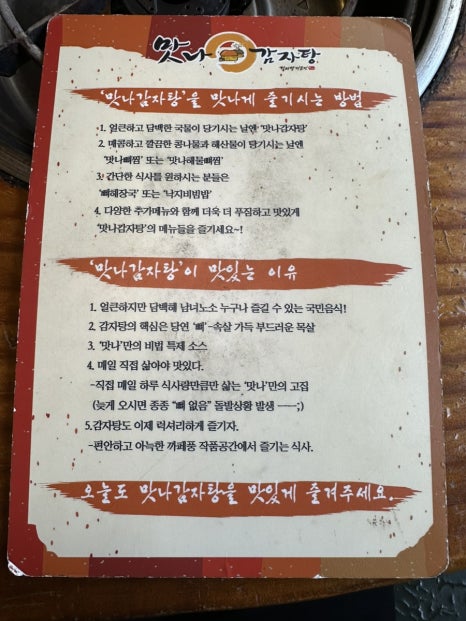 맛나 감자탕
'맛나감자탕'을 맛나게 즐기시는 방법
1. 얼큰하고 담백한 국물이 당기시는 날엔 '맛나감자탕'
2. 매콤하고 깔끔한 콩나물과 해산물이 당기시는 날엔
'맛나뼈찜' 또는 '맛나해물뼈찜'
3. 간단한 식사를 원하시는 분들은
'뼈해장국' 또는 '낙지비빔밥'
4. 다양한 추가메뉴와 함께 더욱 더 푸짐하고 맛있게
'맛나감자탕'의 메뉴들을 즐기세요~!
'맛나감자탕'이 맛있는 이유
1. 얼큰하지만 담백해 남녀노소 누구나 즐길 수 있는 국민음식!
2. 감자탕의 핵심은 당연 '뼈'-속살 가득 부드러운 목살
3. '맛나'만의 비법 특제 소스
4. 매일 직접 삶아야 맛있다.
-직접 매일 하루 식사량만큼만 삶는 '맛나'만의 고집
(늦게 오시면 종종 "뼈 없음" 돌발상황 발생 ----;)
5.감자탕도 이제 럭셔리하게 즐기자.
-편안하고 아늑한 까페풍 작품공간에서 즐기는 식사.
오늘도 맛나감자탕을 맛있게 즐겨주세요.